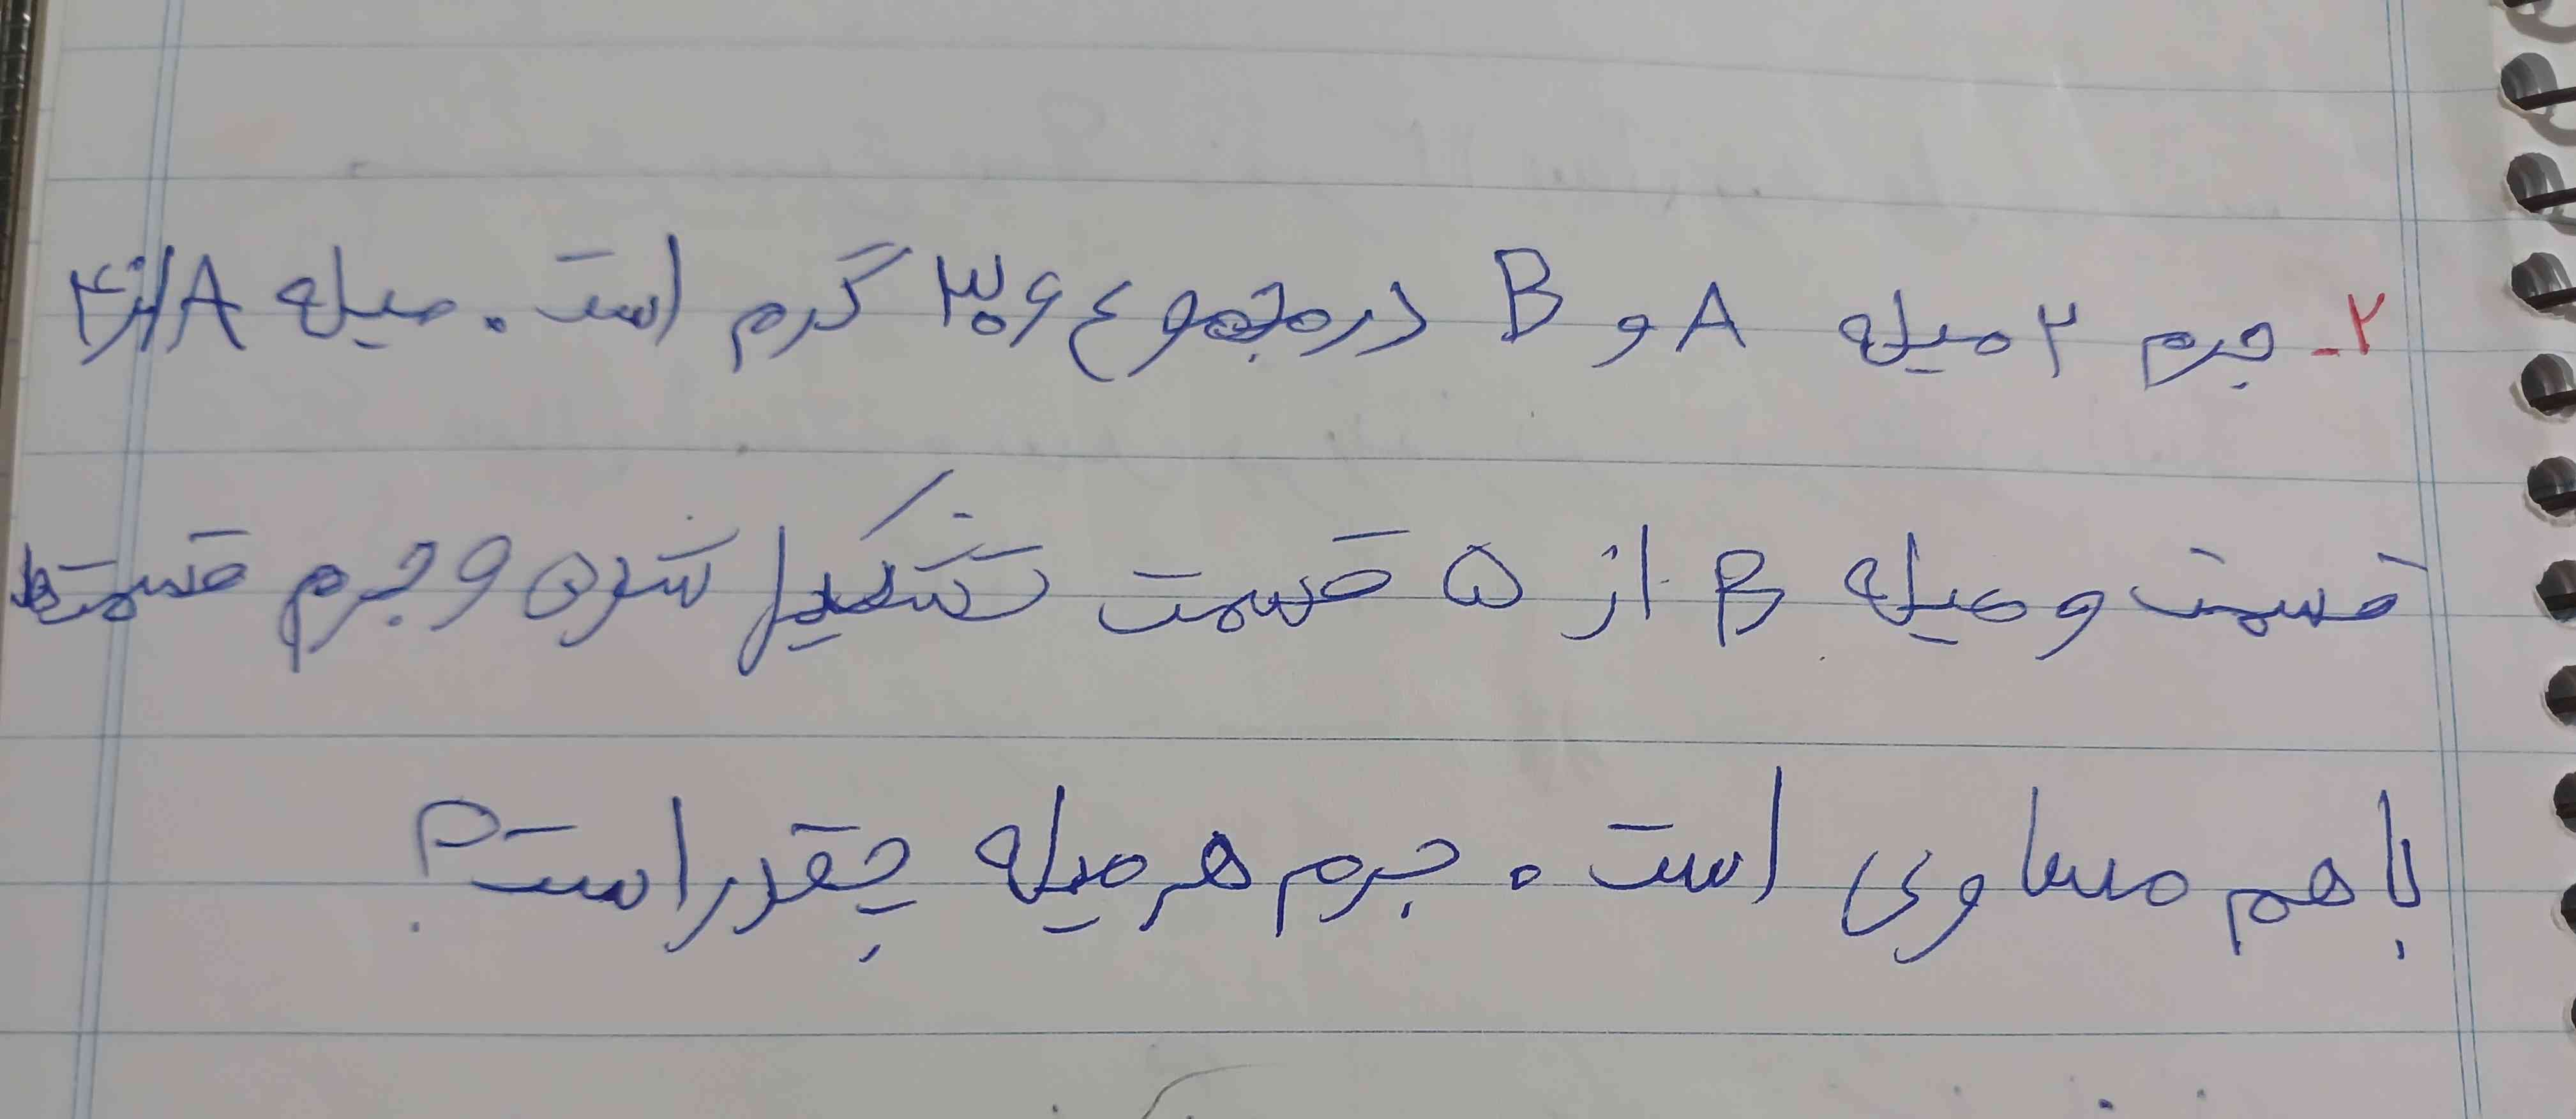 ۲- جرم ۲ میله A و B در مجموع ۳۰۶ گرم است. میله A از ۴
قسمت و میله B از ۵ قسمت تشکیل شده و جرم قسمتها
باهم مساوی است. جرم هر میله چقدر است؟